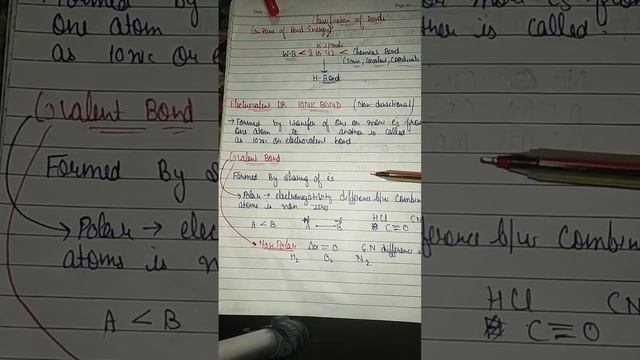 Date
Page no.
Classification of Bonds
On Basis of Bond Energy
KJ/mole
W·B < 8 to 42 < Chemical Bond
(Ionic, Covalent, Coordinate
H-Bond
Electrovalent OR IONIC BOND (Non-directional)
→ Formed by transfer of one or more es from
one atom to another is called
as ionic or electrovalent bond
Covalent Bond
Formed By sharing of es
→ Polar → electronegativity difference b/w combin
atoms is non zero
A < B A → B HCl CN
C≡O
Non Polar Δx = 0 E.N difference
H2 O2 N2
one atom
as ionic or e
Covalent Bond
Formed By s
→ Polar → elec
atoms is n
A < B
ther is called
fference b/w Combin
HCl CN
C≡O